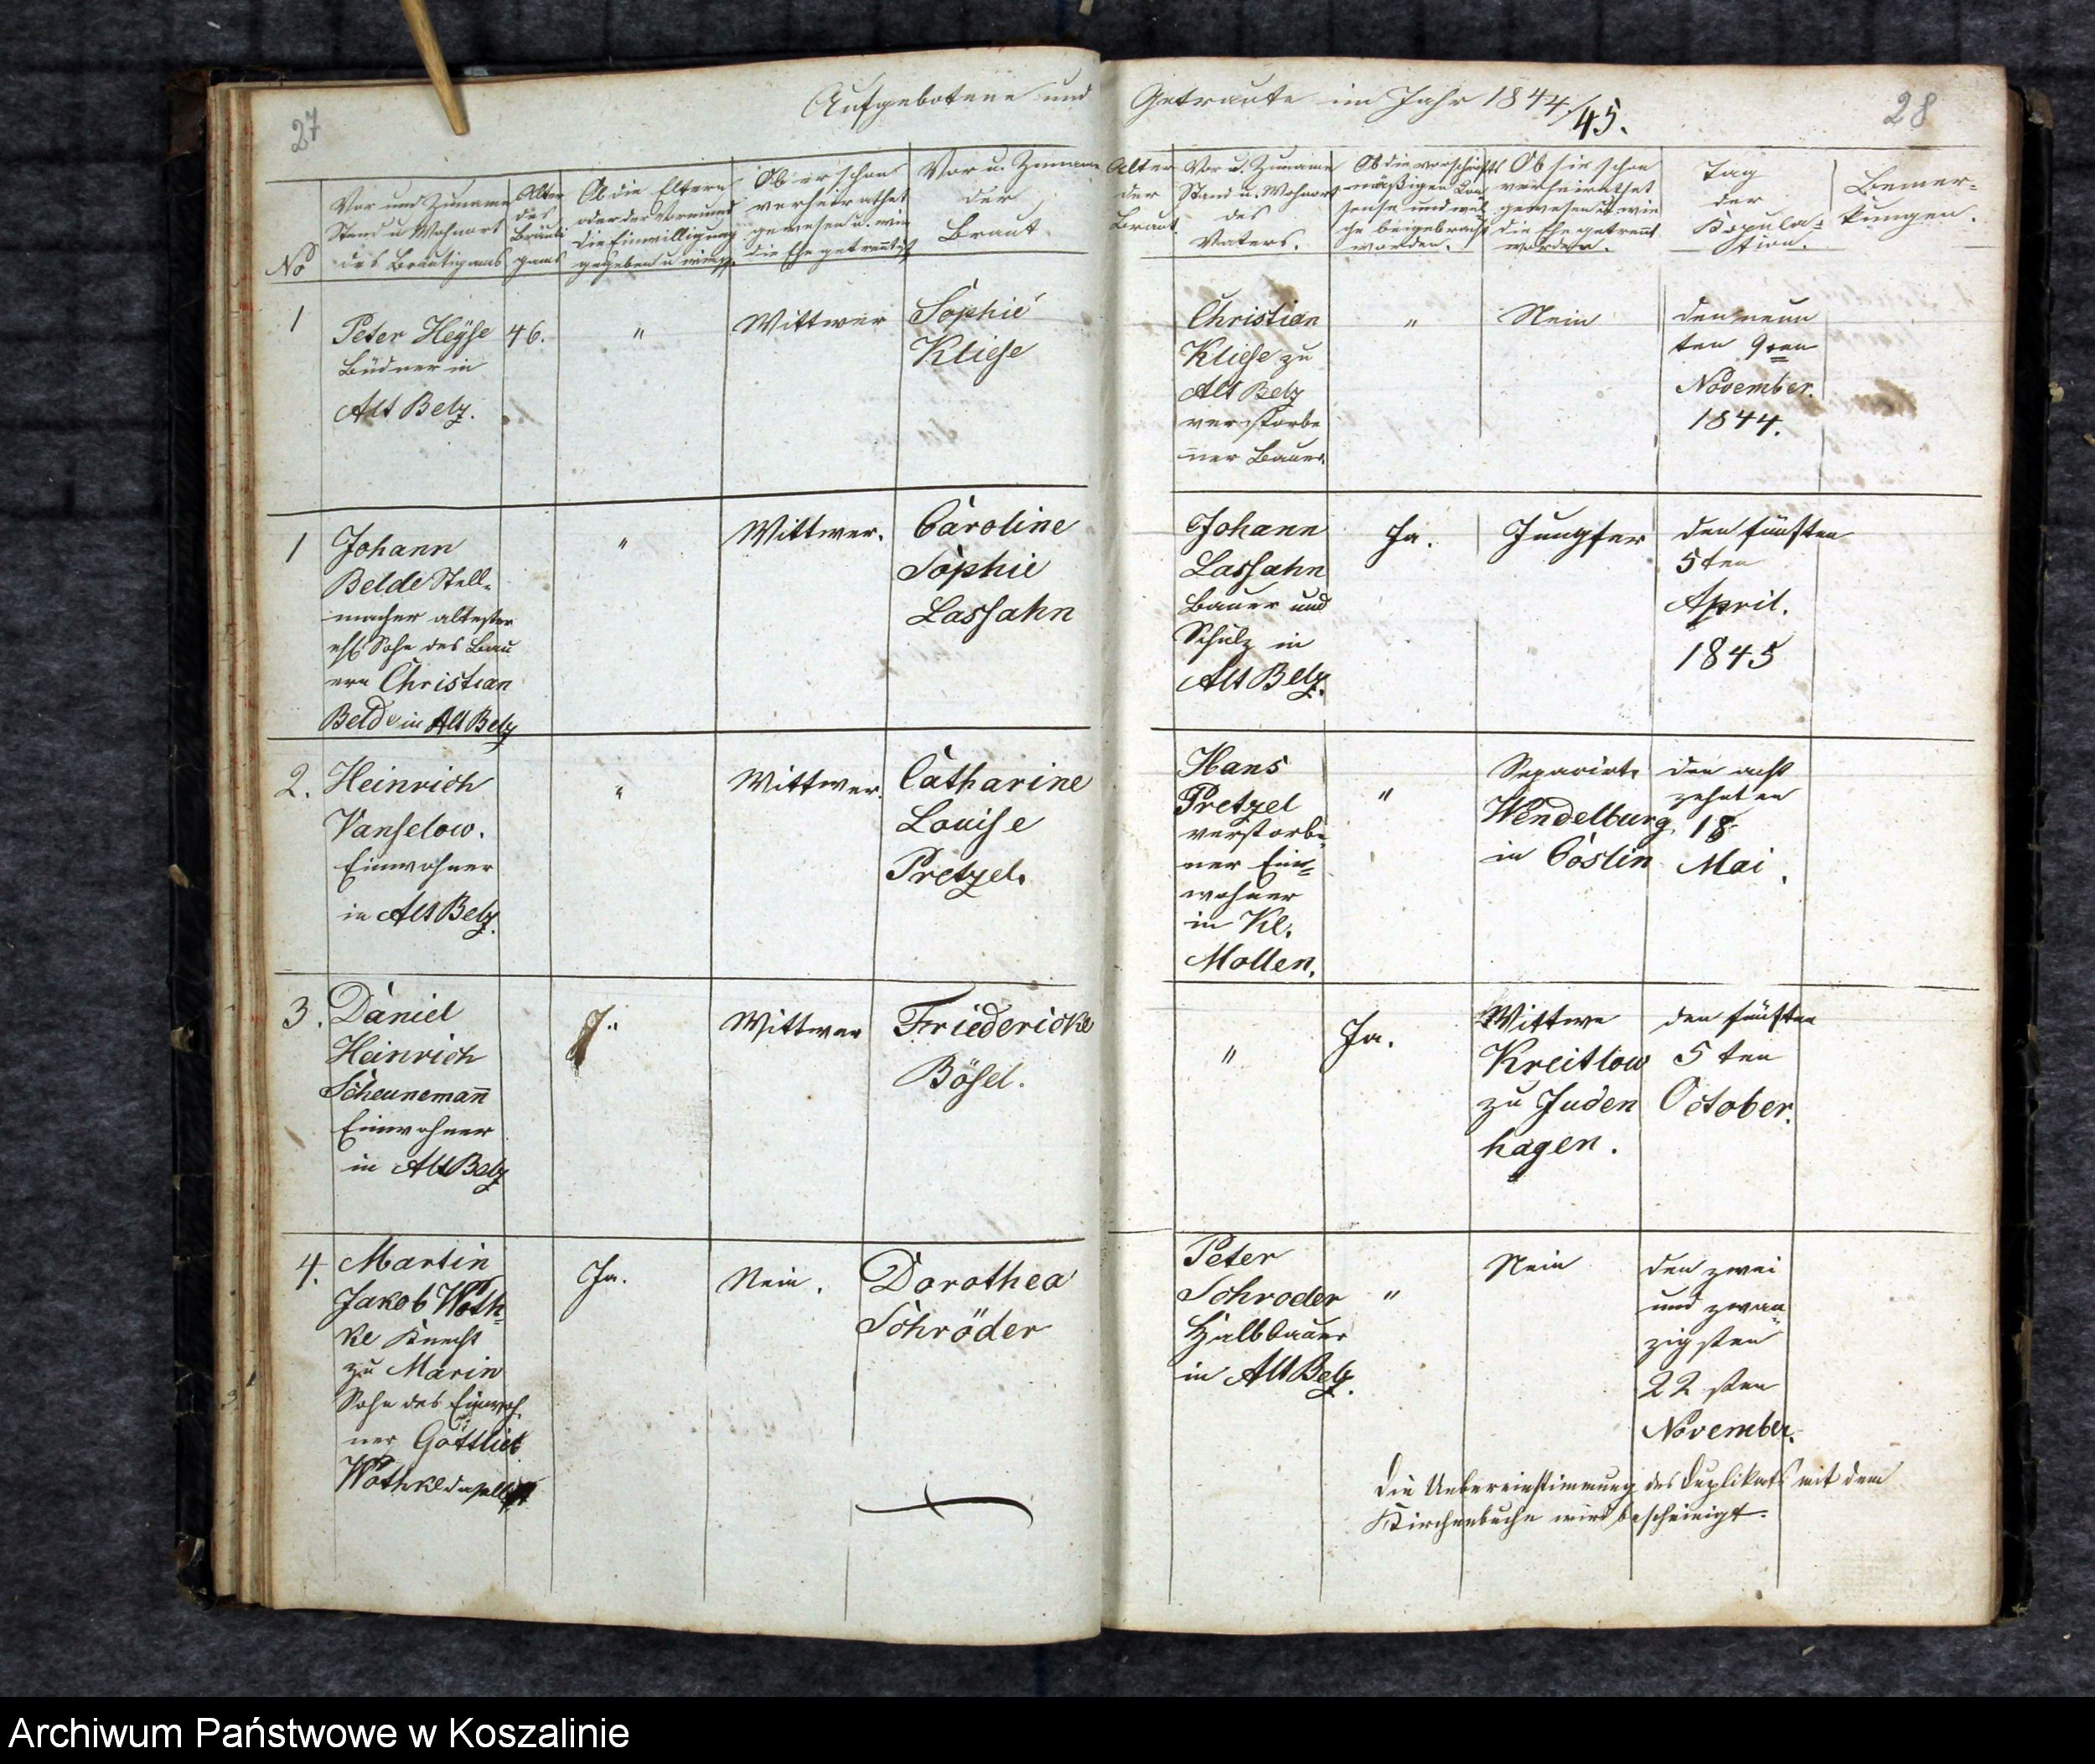 27
Aufgebotene und
Getraute im Jahr 1844/45.
28
No
Vor und Zuname
Stand u Wohnort
des Bräutigams
Alter
des
Bräuti
gams
Ob die Eltern
oder der Vormund
die Einwilligung
gegeben u wie
Ob er schon
verheirathet
gewesen u. wie
die Ehe getrennt ist
Vor u. Zuname
der
Braut
Alter
der
Braut.
Vor u. Zuname
Stand u. Wohnort
des
Vaters.
Ob die vorschrifts
mäßigen Con
sense und wel
che beigebracht
worden.
Ob sie schon
verheirathet
gewesen u wie
die Ehe getrennt
worden.
Tag
der
Kopula=
tion.
Bemer=
kungen.
1
Peter Heÿse
Büdner in
Alt Belz.
46.
"
Wittwer
Sophie
Kliese
Christian
Kliese zu
Alt Belz
verstorbe
ner Bauer.
"
Nein
den neun
ten 9ten
November.
1844.
1
Johann
Belde Stell=
macher altester
ehl Sohn des Bau
ern Christian
Belde in Alt Belz
"
Wittwer.
Caroline
Sophie
Lassahn
Johann
Lassahn
Bauer und
Schulz in
Alt Belz.
Ja.
Jungfer
den fünften
5ten
April.
1845
2.
Heinrich
Vanselow.
Einwohner
in Alt Belz.
"
Wittwer.
Catharine
Louise
Pretzel.
Hans
Pretzel
verstorbe=
ner Ein=
wohner
in Kl.
Mollen.
"
Separirte
Wendelburg
in Cöslin
den acht
zehnten
18
Mai.
3.
Daniel
Heinrich
Scheunemann
Einwohner
in Alt Belz
"
Wittwer
Friedericke
Bösel.
"
Ja.
Wittwe
Kreitlow
zu Juden
hagen.
den fünften
5ten
October.
4.
Martin
Jakob Woth=
ke Knecht
zu Marin
Sohn des Einwoh
ner Gottlieb
Wothke daselbst
Ja.
Nein.
Dorothea
Schröder
Peter
Schroder
Halbbauer
in Alt Belz.
"
Nein
den zwei
und zwan=
zigsten
22sten
November.
Die Uebereinstimmung des Duplikats mit dem
Kirchenbuche wird bescheinigt.
Archiwum Państwowe w Koszalinie